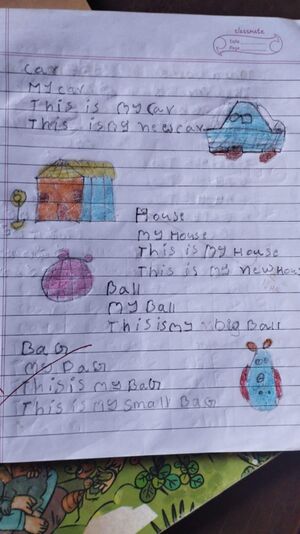 classmate
Date
Page
car
My car
This is My car
This is my new car
House
My House
This is My House
This is my new Hous
Ball
My Ball
This is my big Ball
BaG
My BaG
This is My BaG
This is my small BaG